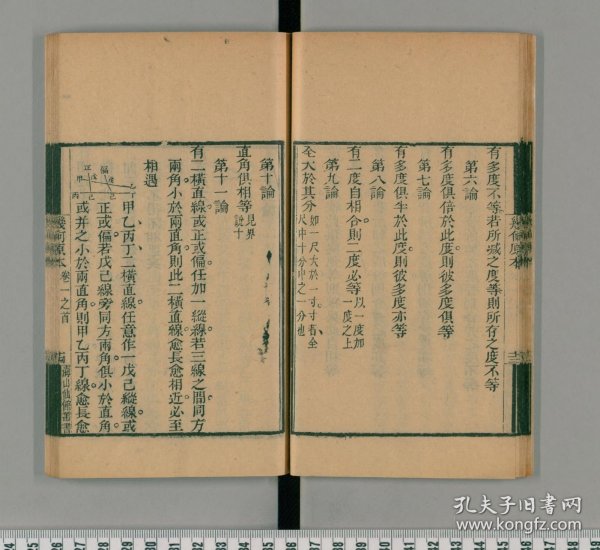 有多度不等若所減之度等則所存之度不等
第六論
有多度俱倍於此度則彼多度俱等
第七論
有多度俱半於此度則彼多度亦等
第八論
有二度自相合則二度必等以一度加一度之上
第九論
全大於其分如一尺大於一寸寸者全尺中十分中之一分也
幾何原本
第十論
直角俱相等見界說十
第十一論
有二橫直線或正或偏任加一縱線若三線之間同方
兩角小於兩直角則此二橫直線愈長愈相近必至
相遇
甲乙丙丁二橫直線任意作一戊己縱線或
正或偏若戊己線旁同方兩角俱小於直角
或并之小於兩直角則甲乙丙丁線愈長愈
幾何原本 卷一之首
海山仙館叢書
孔夫子旧书网
www.kongfz.com
24 25 26 27 28 29 30 31 32 33 34 35 36 37 38 39 40 41 42 43 44 45 46 47 48 49